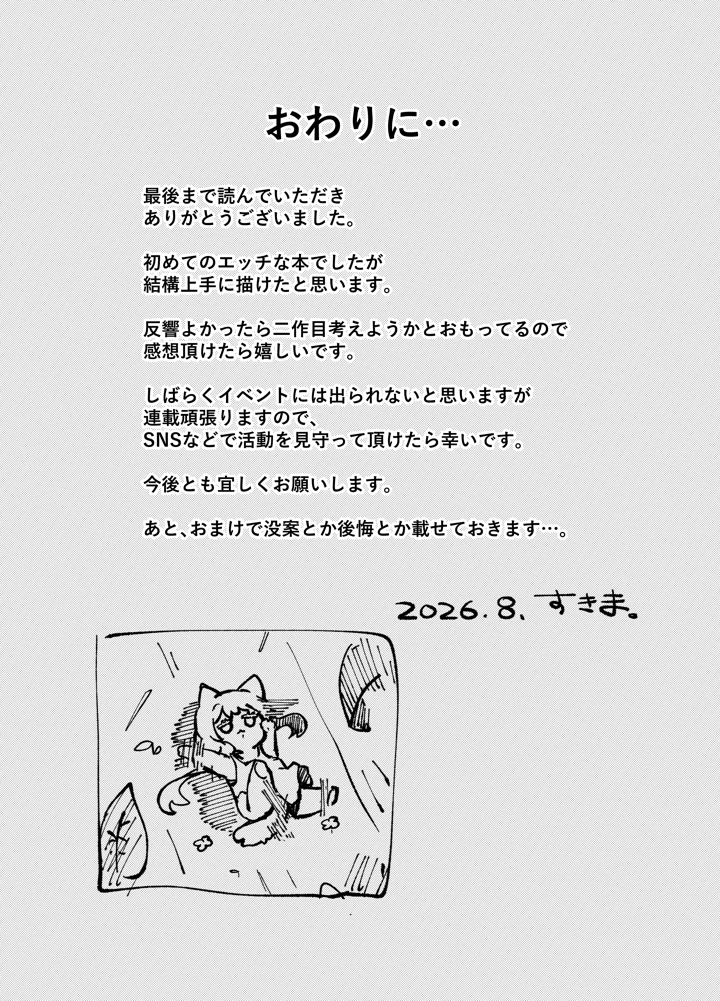 おわりに…
最後まで読んでいただき
ありがとうございました。
初めてのエッチな本でしたが
結構上手に描けたと思います。
反響よかったら二作目考えようかとおもってるので
感想頂けたら嬉しいです。
しばらくイベントには出られないと思いますが
連載頑張りますので、
SNSなどで活動を見守って頂けたら幸いです。
今後とも宜しくお願いします。
あと、おまけで没案とか後悔とか載せておきます…。
2026.8、すきま。